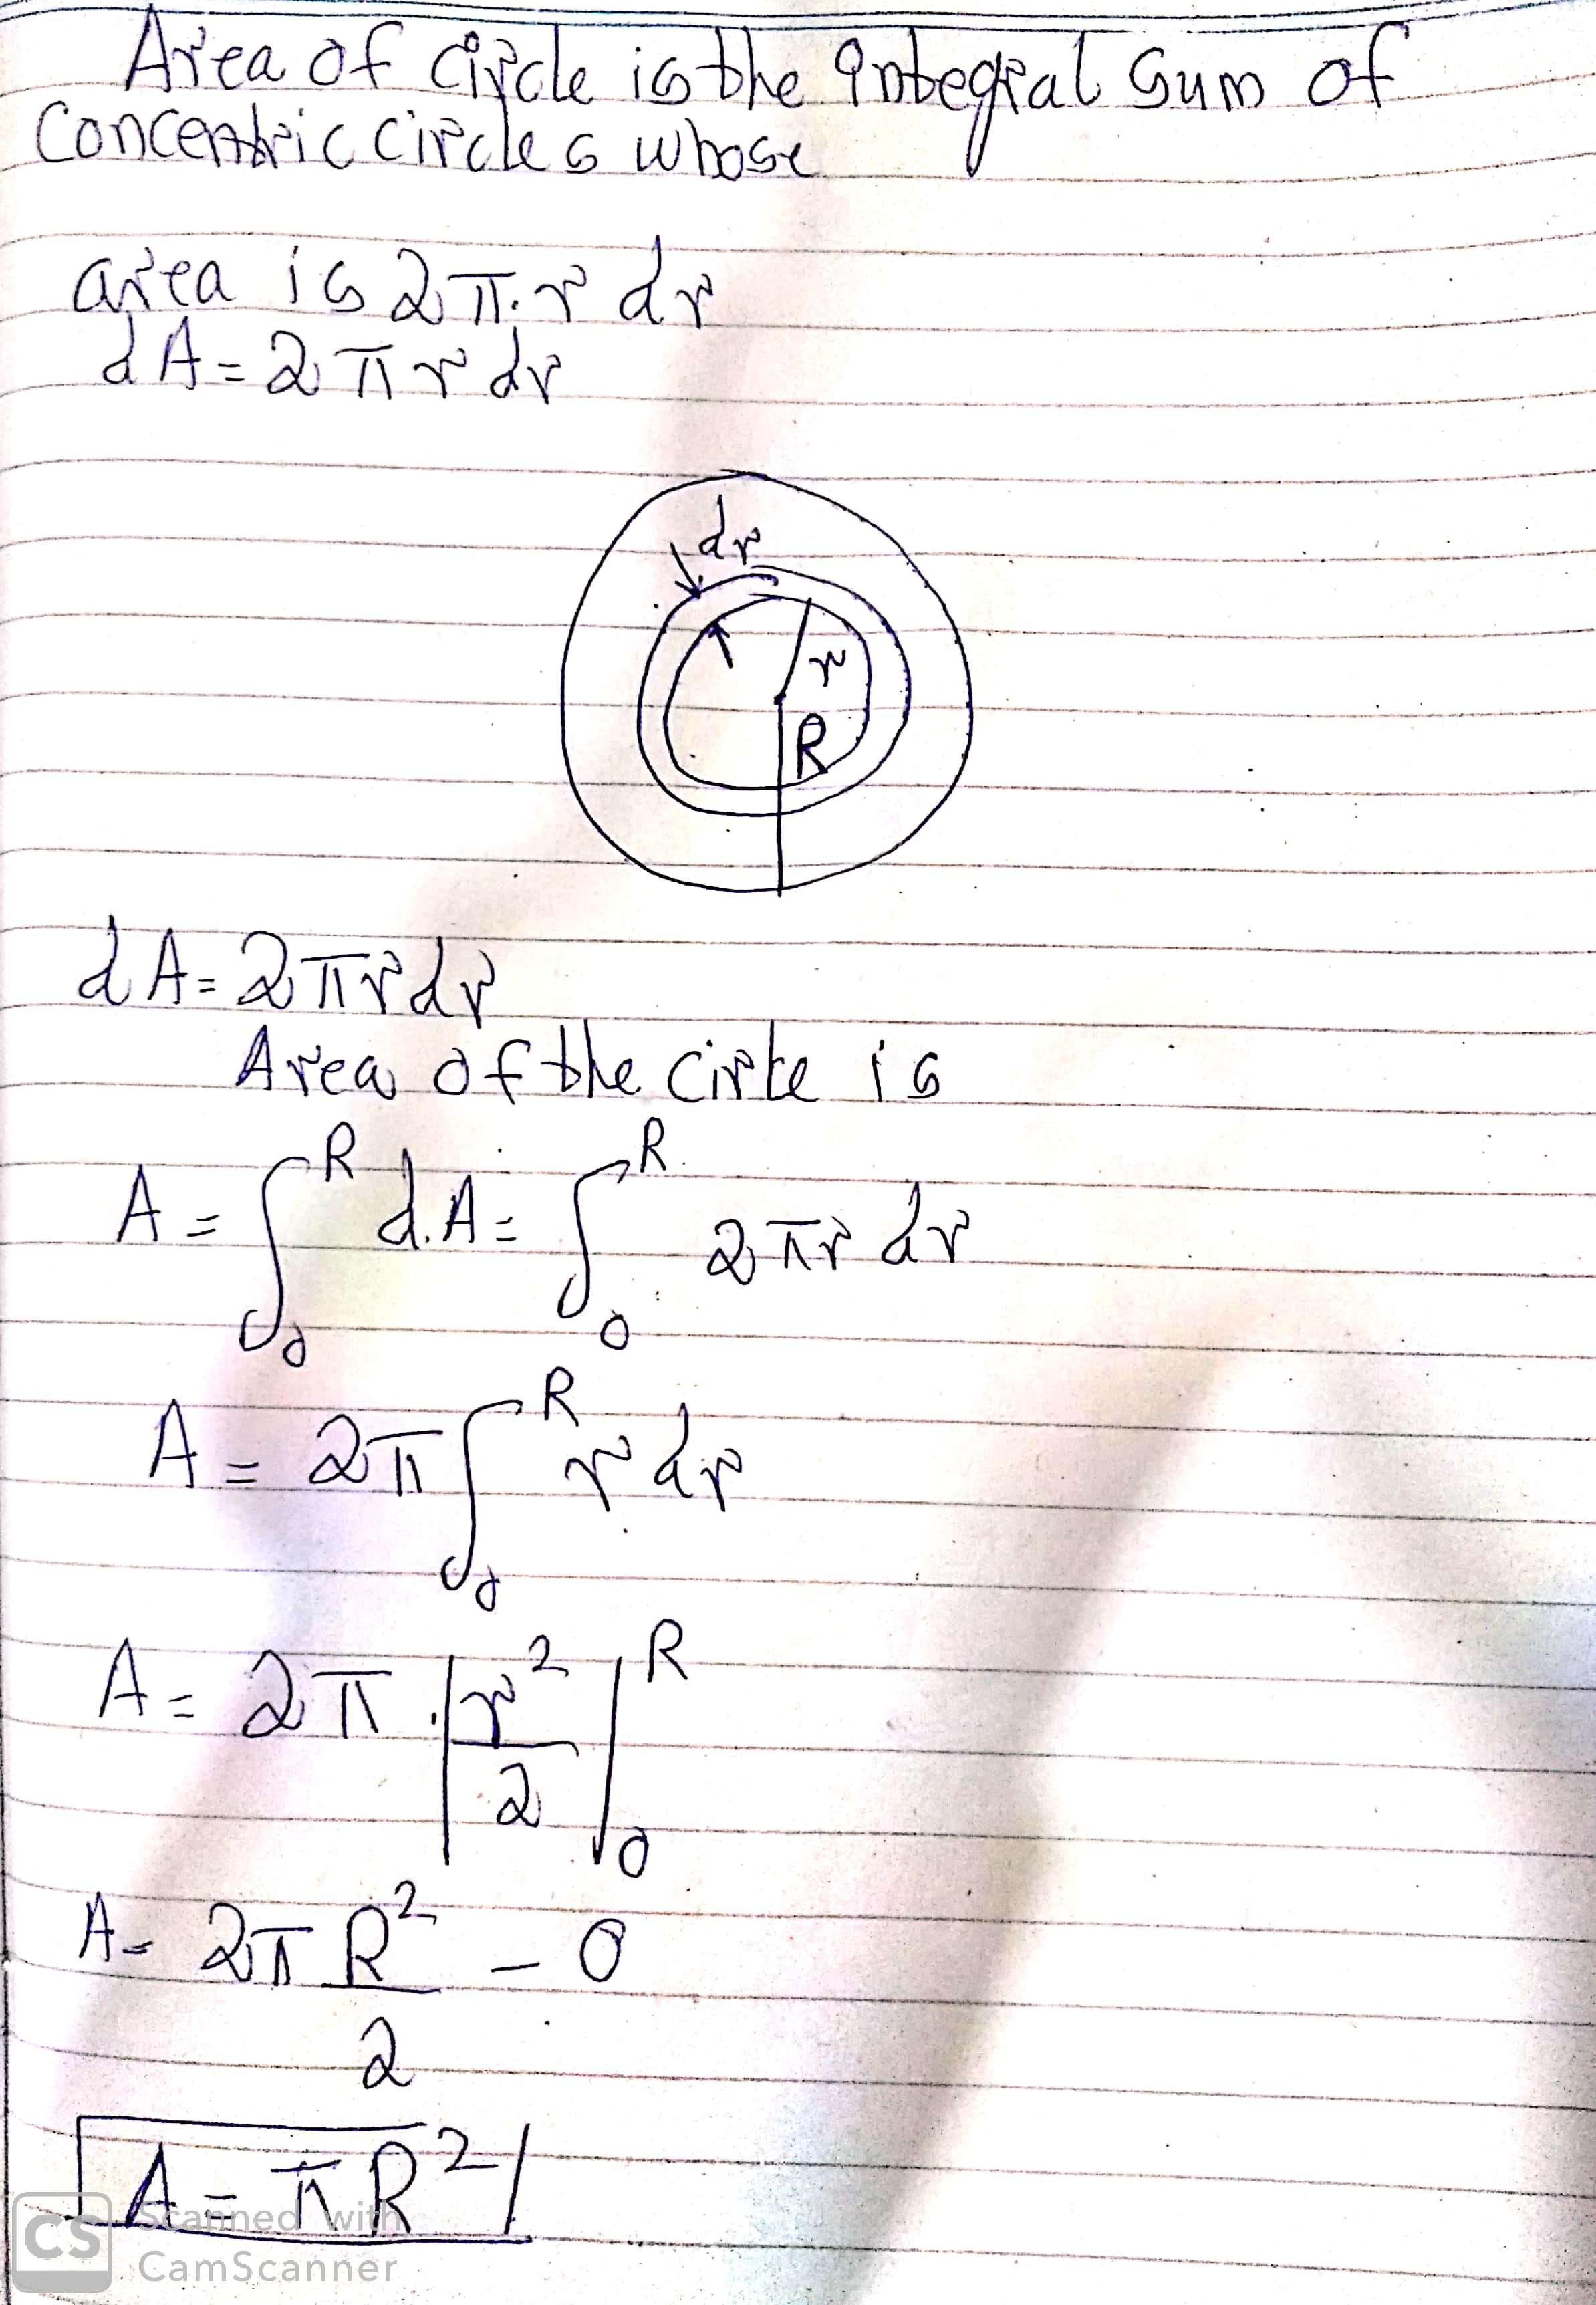 Area of circle is the integral sum of
Concentric circles whose
area is 2π.r dr
dA = 2πr dr
dr
r
R
dA = 2πr dr
Area of the cirke is
A = ∫₀ᴿ d.A = ∫₀ᴿ 2πr dr
A = 2π ∫₀ᴿ r dr
A = 2π . |r²/2|₀ᴿ
A = 2π R²/2 - 0
A = πR²
CS Scanned with
CamScanner